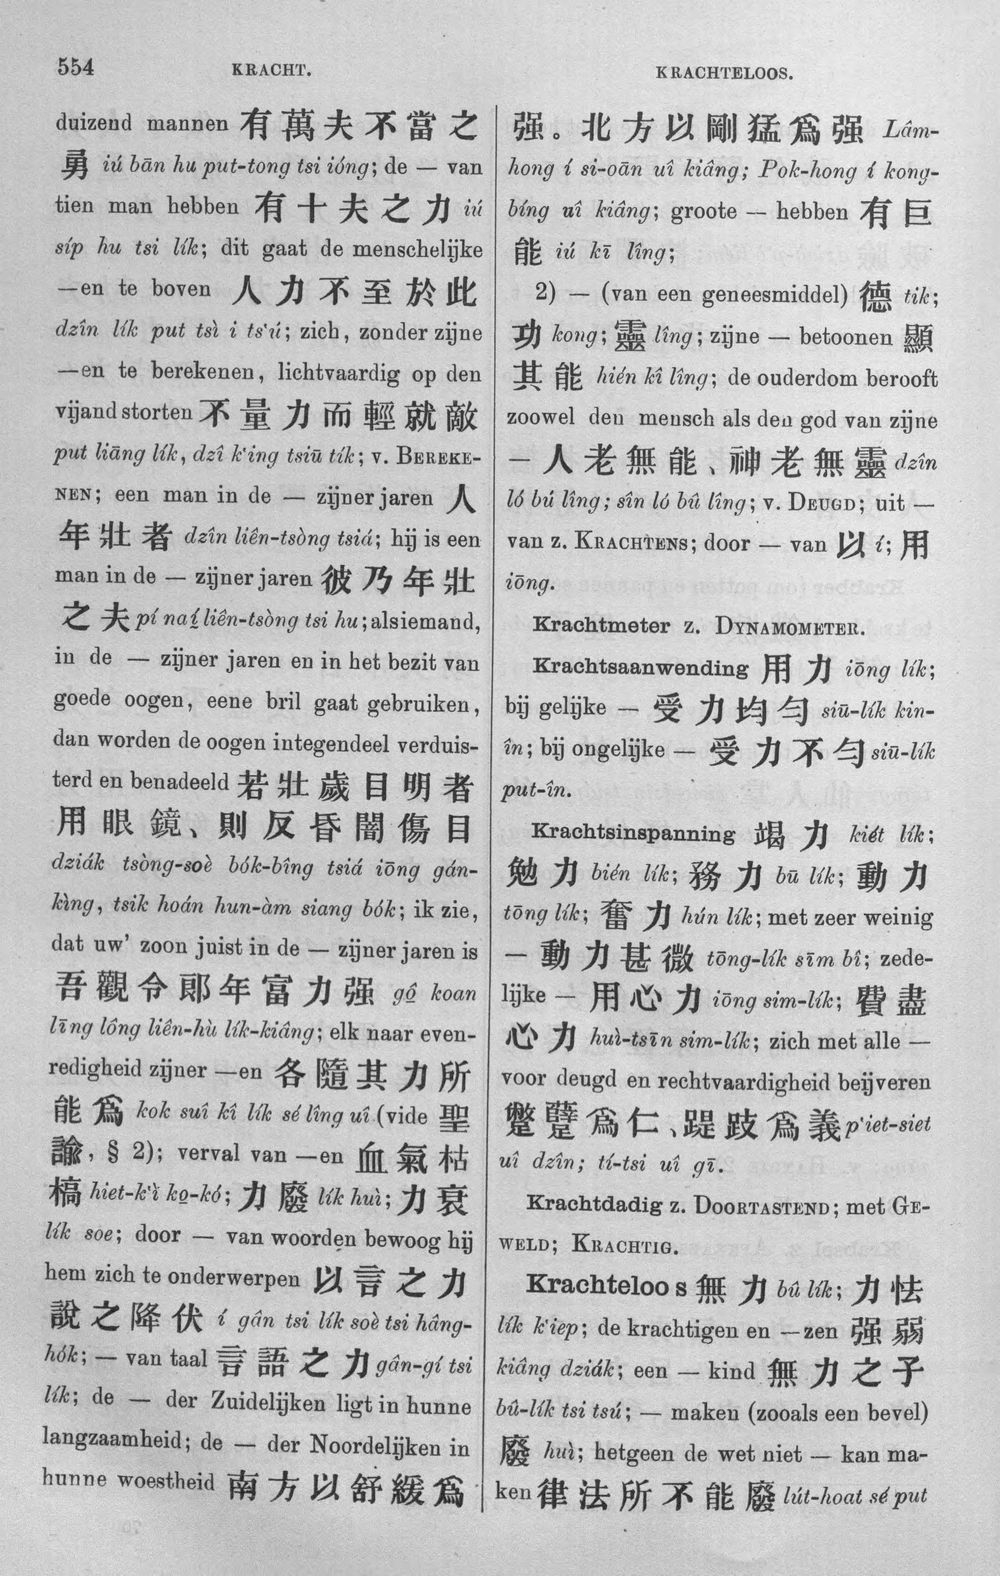 554
KRACHT.
KRACHTELOOS.
duizend mannen 有萬夫不當之
勇 iú bān hu put-tong tsi ióng; de — van
tien man hebben 有十夫之力 iú
síp hu tsi lík; dit gaat de menschelijke
—en te boven 人力不至於此
dzîn lík put tsì i ts'ú; zich, zonder zijne
—en te berekenen, lichtvaardig op den
vijand storten 不量力而輕就敵
put liāng lík, dzî k'ing tsiū tík; v. BEREKE-
NEN; een man in de — zijner jaren 人
年壯者 dzîn liên-tsòng tsiá; hij is een
man in de — zijner jaren 彼乃年壯
之夫 pí naí liên-tsòng tsi hu; als iemand,
in de — zijner jaren en in het bezit van
goede oogen, eene bril gaat gebruiken,
dan worden de oogen integendeel verduis-
terd en benadeeld 若壯歲目明者
用眼鏡、則反昏闇傷目
dziák tsòng-soè bók-bîng tsiá iōng gán-
kìng, tsik hoán hun-àm siang bók; ik zie,
dat uw' zoon juist in de — zijner jaren is
吾觀令郎年富力强 gô koan
līng lông liên-hù lík-kiâng; elk naar even-
redigheid zijner —en 各隨其力所
能爲 kok suî kî lík sé lîng uî (vide 聖
諭, § 2); verval van —en 血氣枯
槁 hiet-k'ì ko-kó; 力廢 lík huì; 力衰
lík soe; door — van woorden bewoog hij
hem zich te onderwerpen 以言之力
說之降伏 í gân tsi lík soè tsi hâng-
hók; — van taal 言語之力 gân-gí tsi
lík; de — der Zuidelijken ligt in hunne
langzaamheid; de — der Noordelijken in
hunne woestheid 南方以舒緩爲
强。北方以剛猛爲强 Lâm-
hong í si-oān uî kiâng; Pok-hong í kong-
bíng uî kiâng; groote — hebben 有巨
能 iú kī lîng;
2) — (van een geneesmiddel) 德 tik;
功 kong; 靈 lîng; zijne — betoonen 顯
其能 hién kî lîng; de ouderdom berooft
zoowel den mensch als den god van zijne
— 人老無能、神老無靈 dzîn
ló bú lîng; sîn ló bû lîng; v. DEUGD; uit —
van z. KRACHTENS; door — van 以 í; 用
iōng.
Krachtmeter z. DYNAMOMETER.
Krachtsaanwending 用力 iōng lík;
bij gelijke — 受力均勻 siū-lík kin-
în; bij ongelijke — 受力不勻 siū-lík
put-în.
Krachtsinspanning 竭力 kiét lík;
勉力 bién lík; 務力 bū lík; 動力
tōng lík; 奮力 hún lík; met zeer weinig
— 動力甚微 tōng-lík sīm bî; zede-
lijke — 用心力 iōng sim-lík; 費盡
心力 huì-tsīn sim-lík; zich met alle —
voor deugd en rechtvaardigheid beijveren
蹩躠爲仁、踶跂爲義 p'iet-siet
uî dzîn; tí-tsi uî gī.
Krachtdadig z. DOORTASTEND; met GE-
WELD; KRACHTIG.
Krachteloos 無力 bû lík; 力怯
lík k'iep; de krachtigen en —zen 强弱
kiâng dziák; een — kind 無力之子
bû-lík tsi tsú; — maken (zooals een bevel)
廢 huì; hetgeen de wet niet — kan ma-
ken 律法所不能廢 lút-hoat sé put